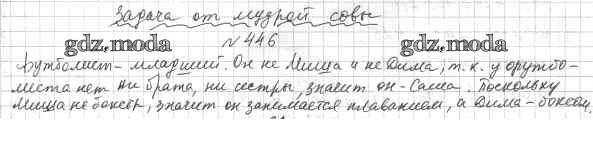 Задача от мудрой совы
№ 446
gdz.moda gdz.moda
Футболист - младший. Он не Миша и не Дима, т. к. у футбо-
листа нет ни брата, ни сестры, значит он - Саша. Поскольку
Миша не боксёр, значит он занимается плаванием, а Дима - боксом.